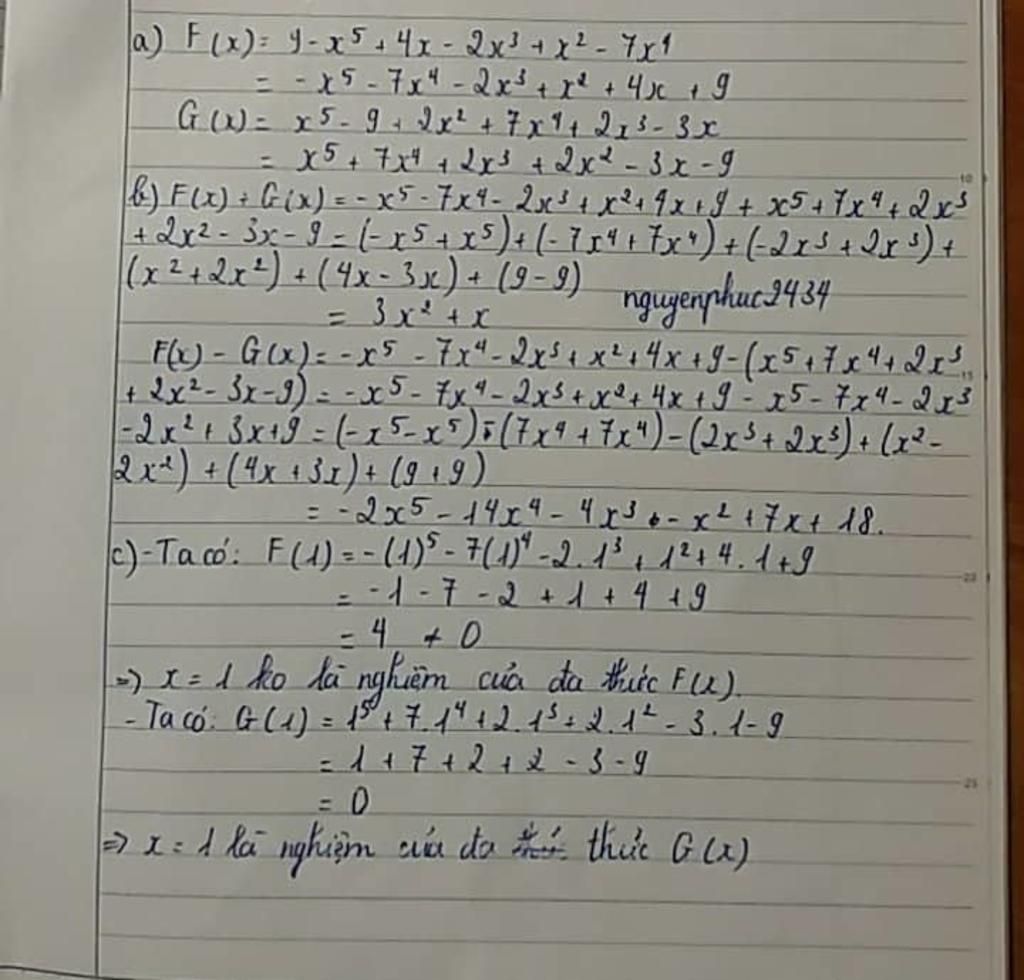 a) F(x) = 9 - x⁵ + 4x - 2x³ + x² - 7x⁴
= - x⁵ - 7x⁴ - 2x³ + x² + 4x + 9
G(x) = x⁵ - 9 + 2x² + 7x⁴ + 2x³ - 3x
= x⁵ + 7x⁴ + 2x³ + 2x² - 3x - 9
10
b) F(x) + G(x) = - x⁵ - 7x⁴ - 2x³ + x² + 4x + 9 + x⁵ + 7x⁴ + 2x³
+ 2x² - 3x - 9 = (- x⁵ + x⁵) + (- 7x⁴ + 7x⁴) + (-2x³ + 2x³) +
(x² + 2x²) + (4x - 3x) + (9 - 9)
nguyenphuc2434
= 3x² + x
F(x) - G(x) = - x⁵ - 7x⁴ - 2x³ + x² + 4x + 9 - (x⁵ + 7x⁴ + 2x³
15
+ 2x² - 3x - 9) = - x⁵ - 7x⁴ - 2x³ + x² + 4x + 9 - x⁵ - 7x⁴ - 2x³
- 2x² + 3x + 9 = (- x⁵ - x⁵) - (7x⁴ + 7x⁴) - (2x³ + 2x³) + (x² -
2x²) + (4x + 3x) + (9 + 9)
= - 2x⁵ - 14x⁴ - 4x³ - x² + 7x + 18.
c) - Ta có: F(1) = - (1)⁵ - 7(1)⁴ - 2.1³ + 1² + 4.1 + 9
20
= - 1 - 7 - 2 + 1 + 4 + 9
= 4 ≠ 0
=> x = 1 ko là nghiệm của đa thức F(x).
- Ta có: G(1) = 1⁵ + 7.1⁴ + 2.1³ + 2.1² - 3.1 - 9
= 1 + 7 + 2 + 2 - 3 - 9
25
= 0
=> x = 1 là nghiệm của đa thức G(x)